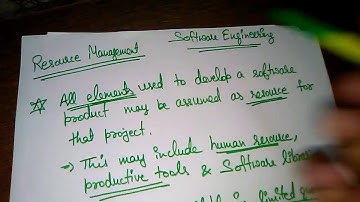 Resource Management
Software Engineering
☆ All elements used to develop a software
product may be assumed as resource for
that project.
→ This may include human resource,
productive tools & Software
in limited